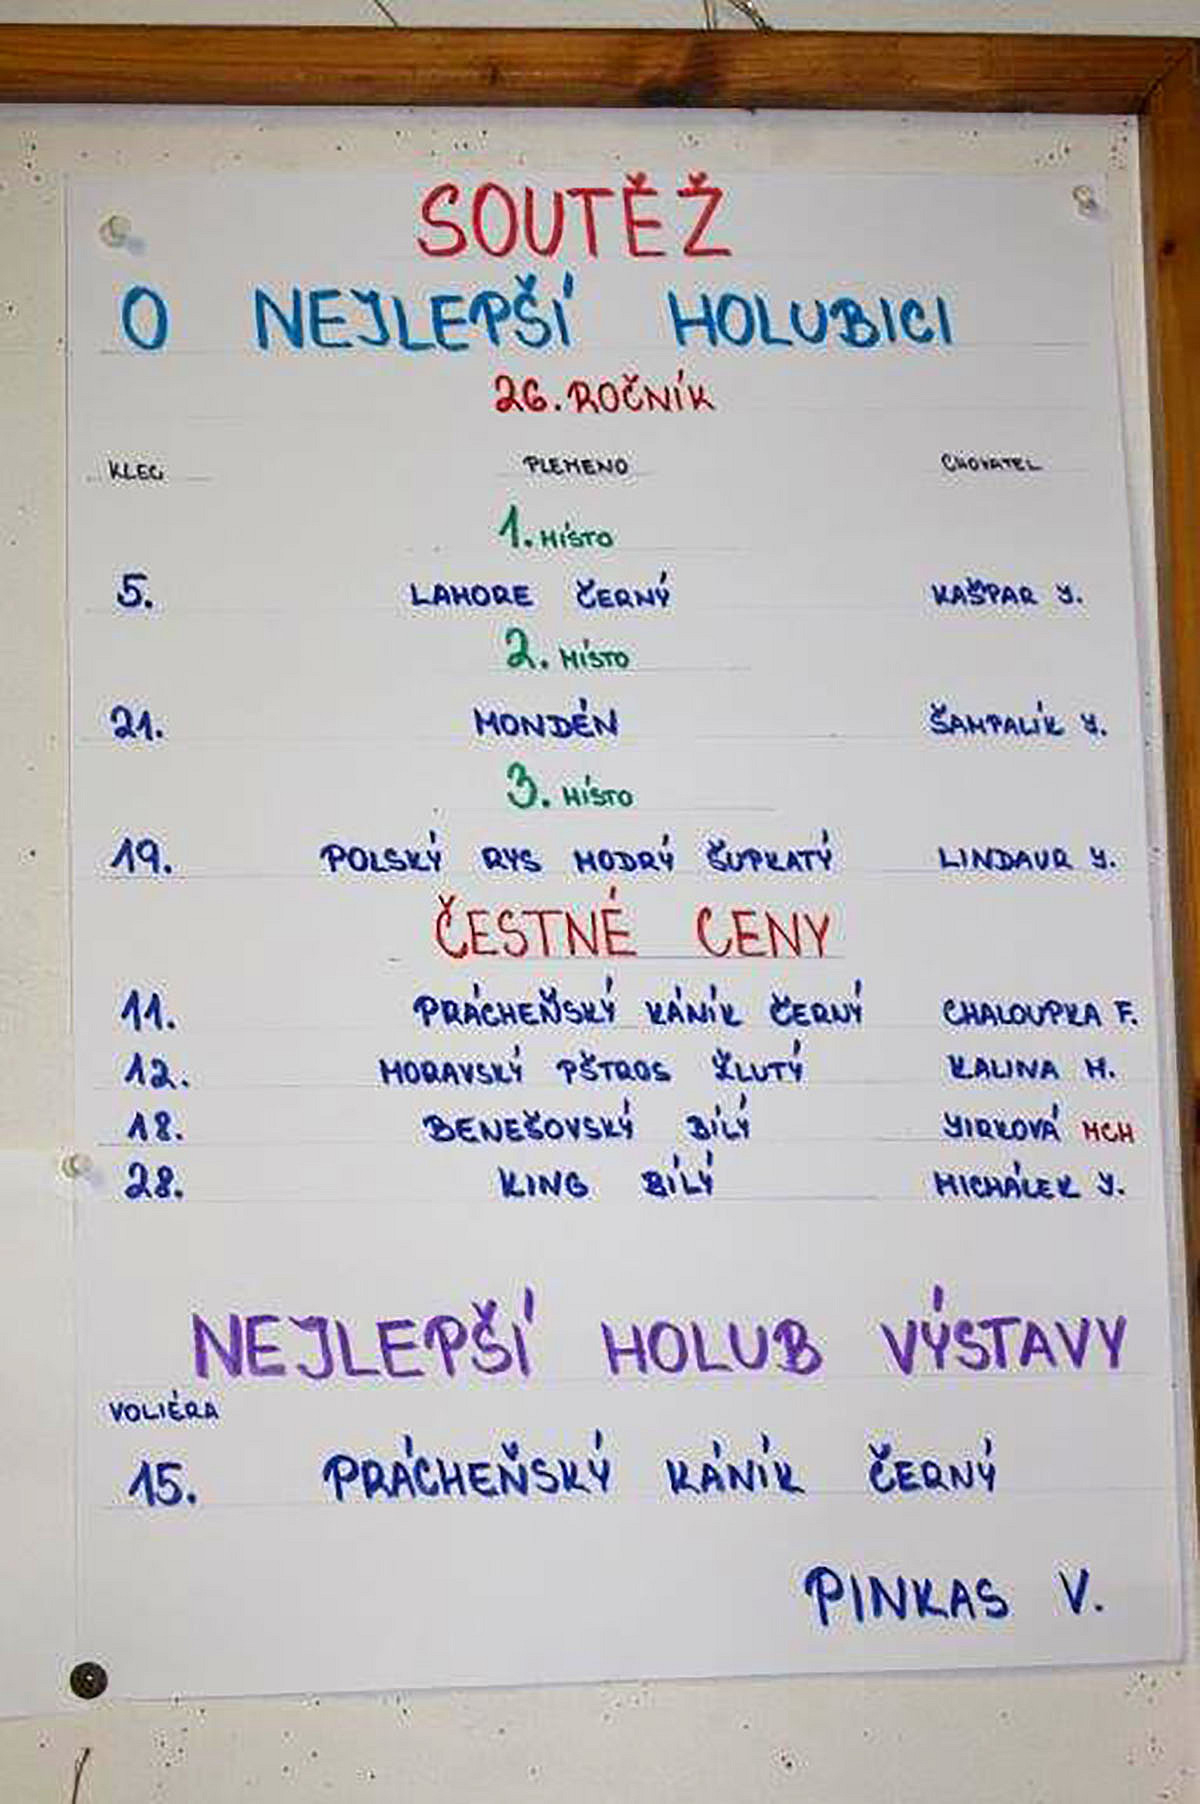 SOUTĚŽ
O NEJLEPŠÍ HOLUBICI
26. ROČNÍK
KLEC PLEMENO CHOVATEL
1. MÍSTO
5. LAHORE ČERNÝ KAŠPAR J.
2. MÍSTO
21. MONDÉN ŠAMPALÍK J.
3. MÍSTO
19. POLSKÝ RYS MODRÝ ŠUPKATÝ LINDAUR J.
ČESTNÉ CENY
11. PRÁCHEŇSKÝ KÁNÍK ČERNÝ CHALOUPKA F.
12. MORAVSKÝ PŠTROS ŽLUTÝ KALINA M.
18. BENEŠOVSKÝ BÍLÝ JIRKOVÁ MCH
28. KING BÍLÝ MICHÁLEK J.
NEJLEPŠÍ HOLUB VÝSTAVY
VOLIÉRA
15. PRÁCHEŇSKÝ KÁNÍK ČERNÝ
PINKAS V.